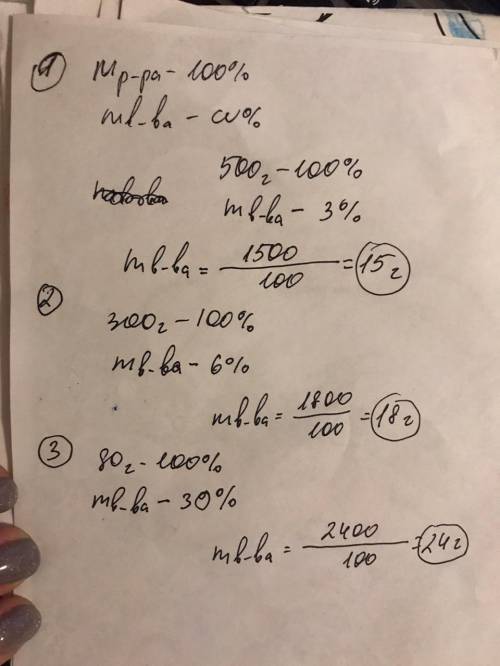 1 mр-ра - 100%
mв-ва - ω%
500г - 100%
mв-ва - 3%
mв-ва = 1500/100 = 15г
2
300г - 100%
mв-ва - 6%
mв-ва = 1800/100 = 18г
3 80г - 100%
mв-ва - 30%
mв-ва = 2400/100 = 24г